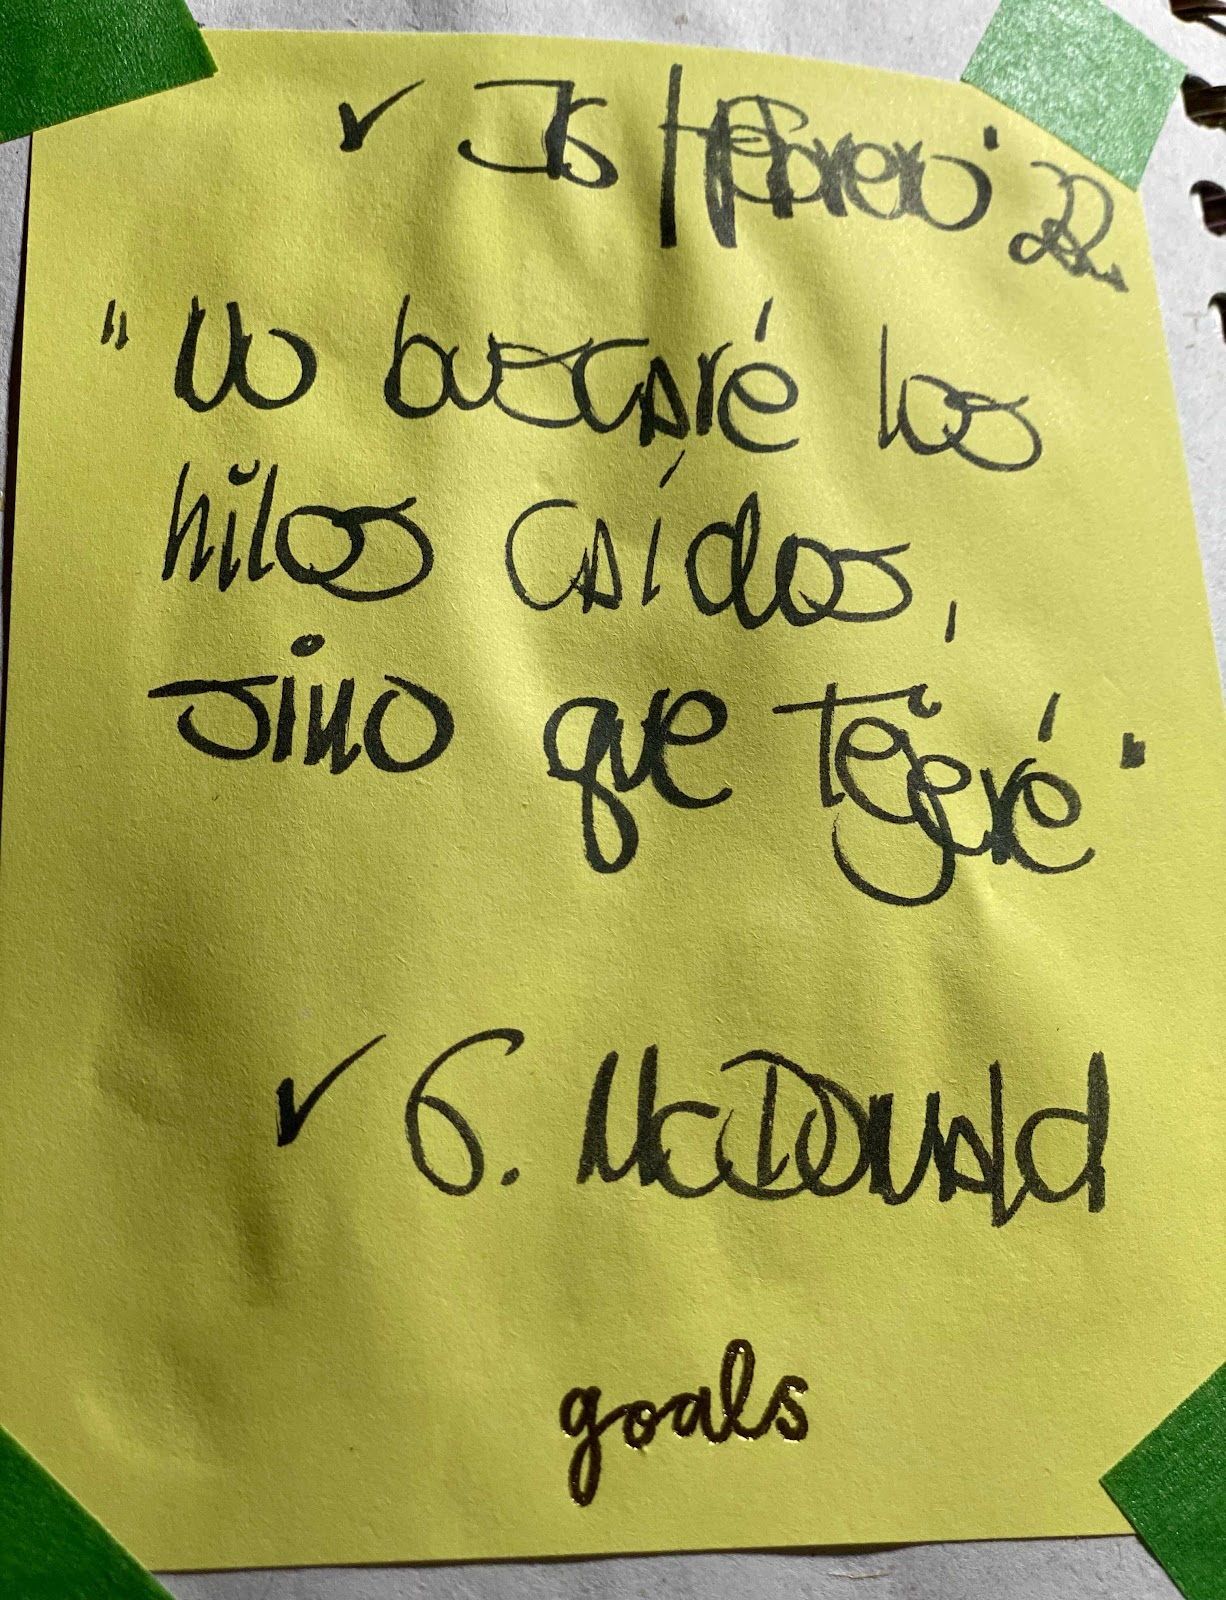 ✓ JS / febrero '22
"No buscaré los
hilos caídos,
sino que tejeré"
✓ G. McDonald
goals